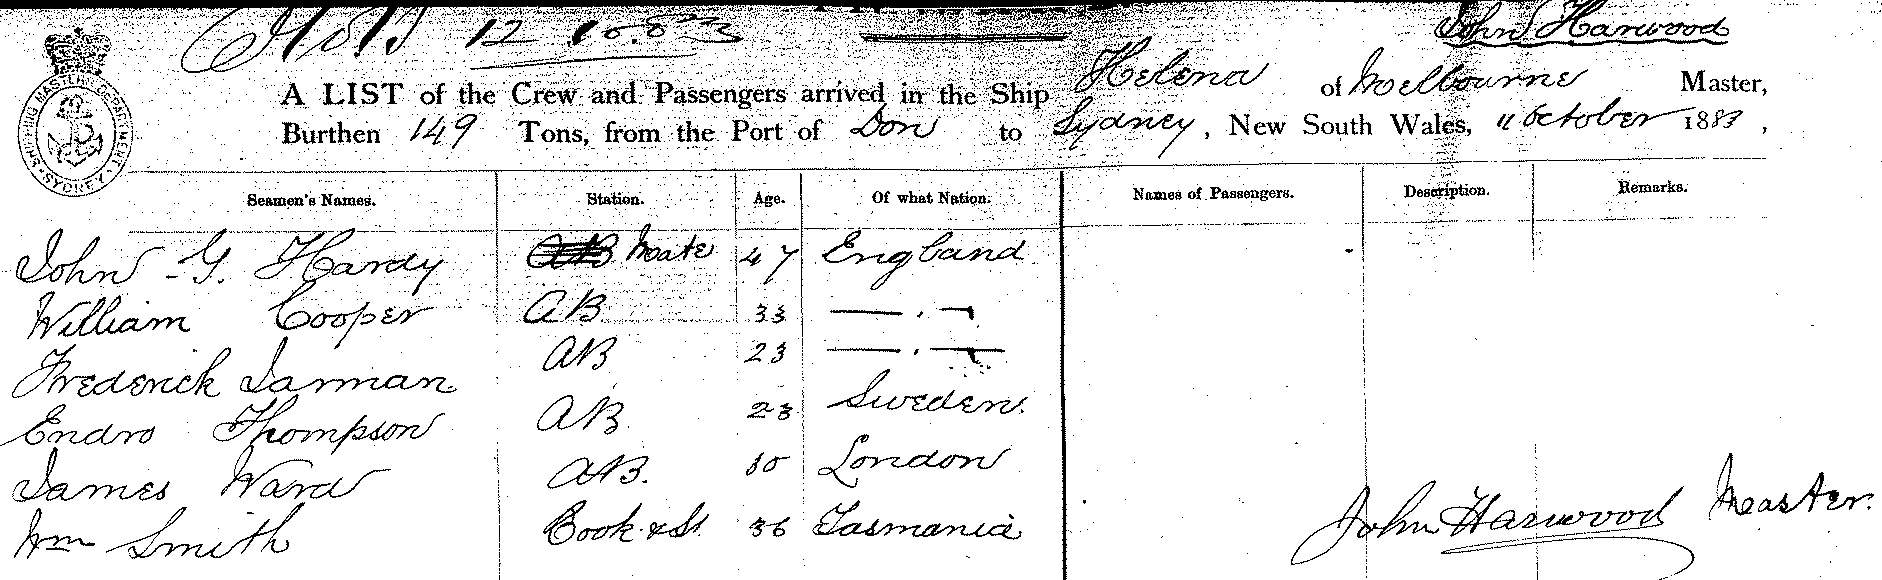 12 10.83
John Harwood
A LIST of the Crew and Passengers arrived in the Ship Helena of Melbourne Master,
Burthen 149 Tons, from the Port of Don to Sydney, New South Wales, 11 October 1883,
SHIPPING MASTER'S DEPARTMENT SYDNEY
Seamen's Names. Station. Age. Of what Nation. Names of Passengers. Description. Remarks.
John G. Hardy AB Mate 47 England
William Cooper AB 33 — . —
Frederick Jarman AB 23 — . —
Endro Thompson AB 23 Sweden.
James Ward AB. London
Wm Smith Cook & St. 36 Tasmania
John Harwood Master.